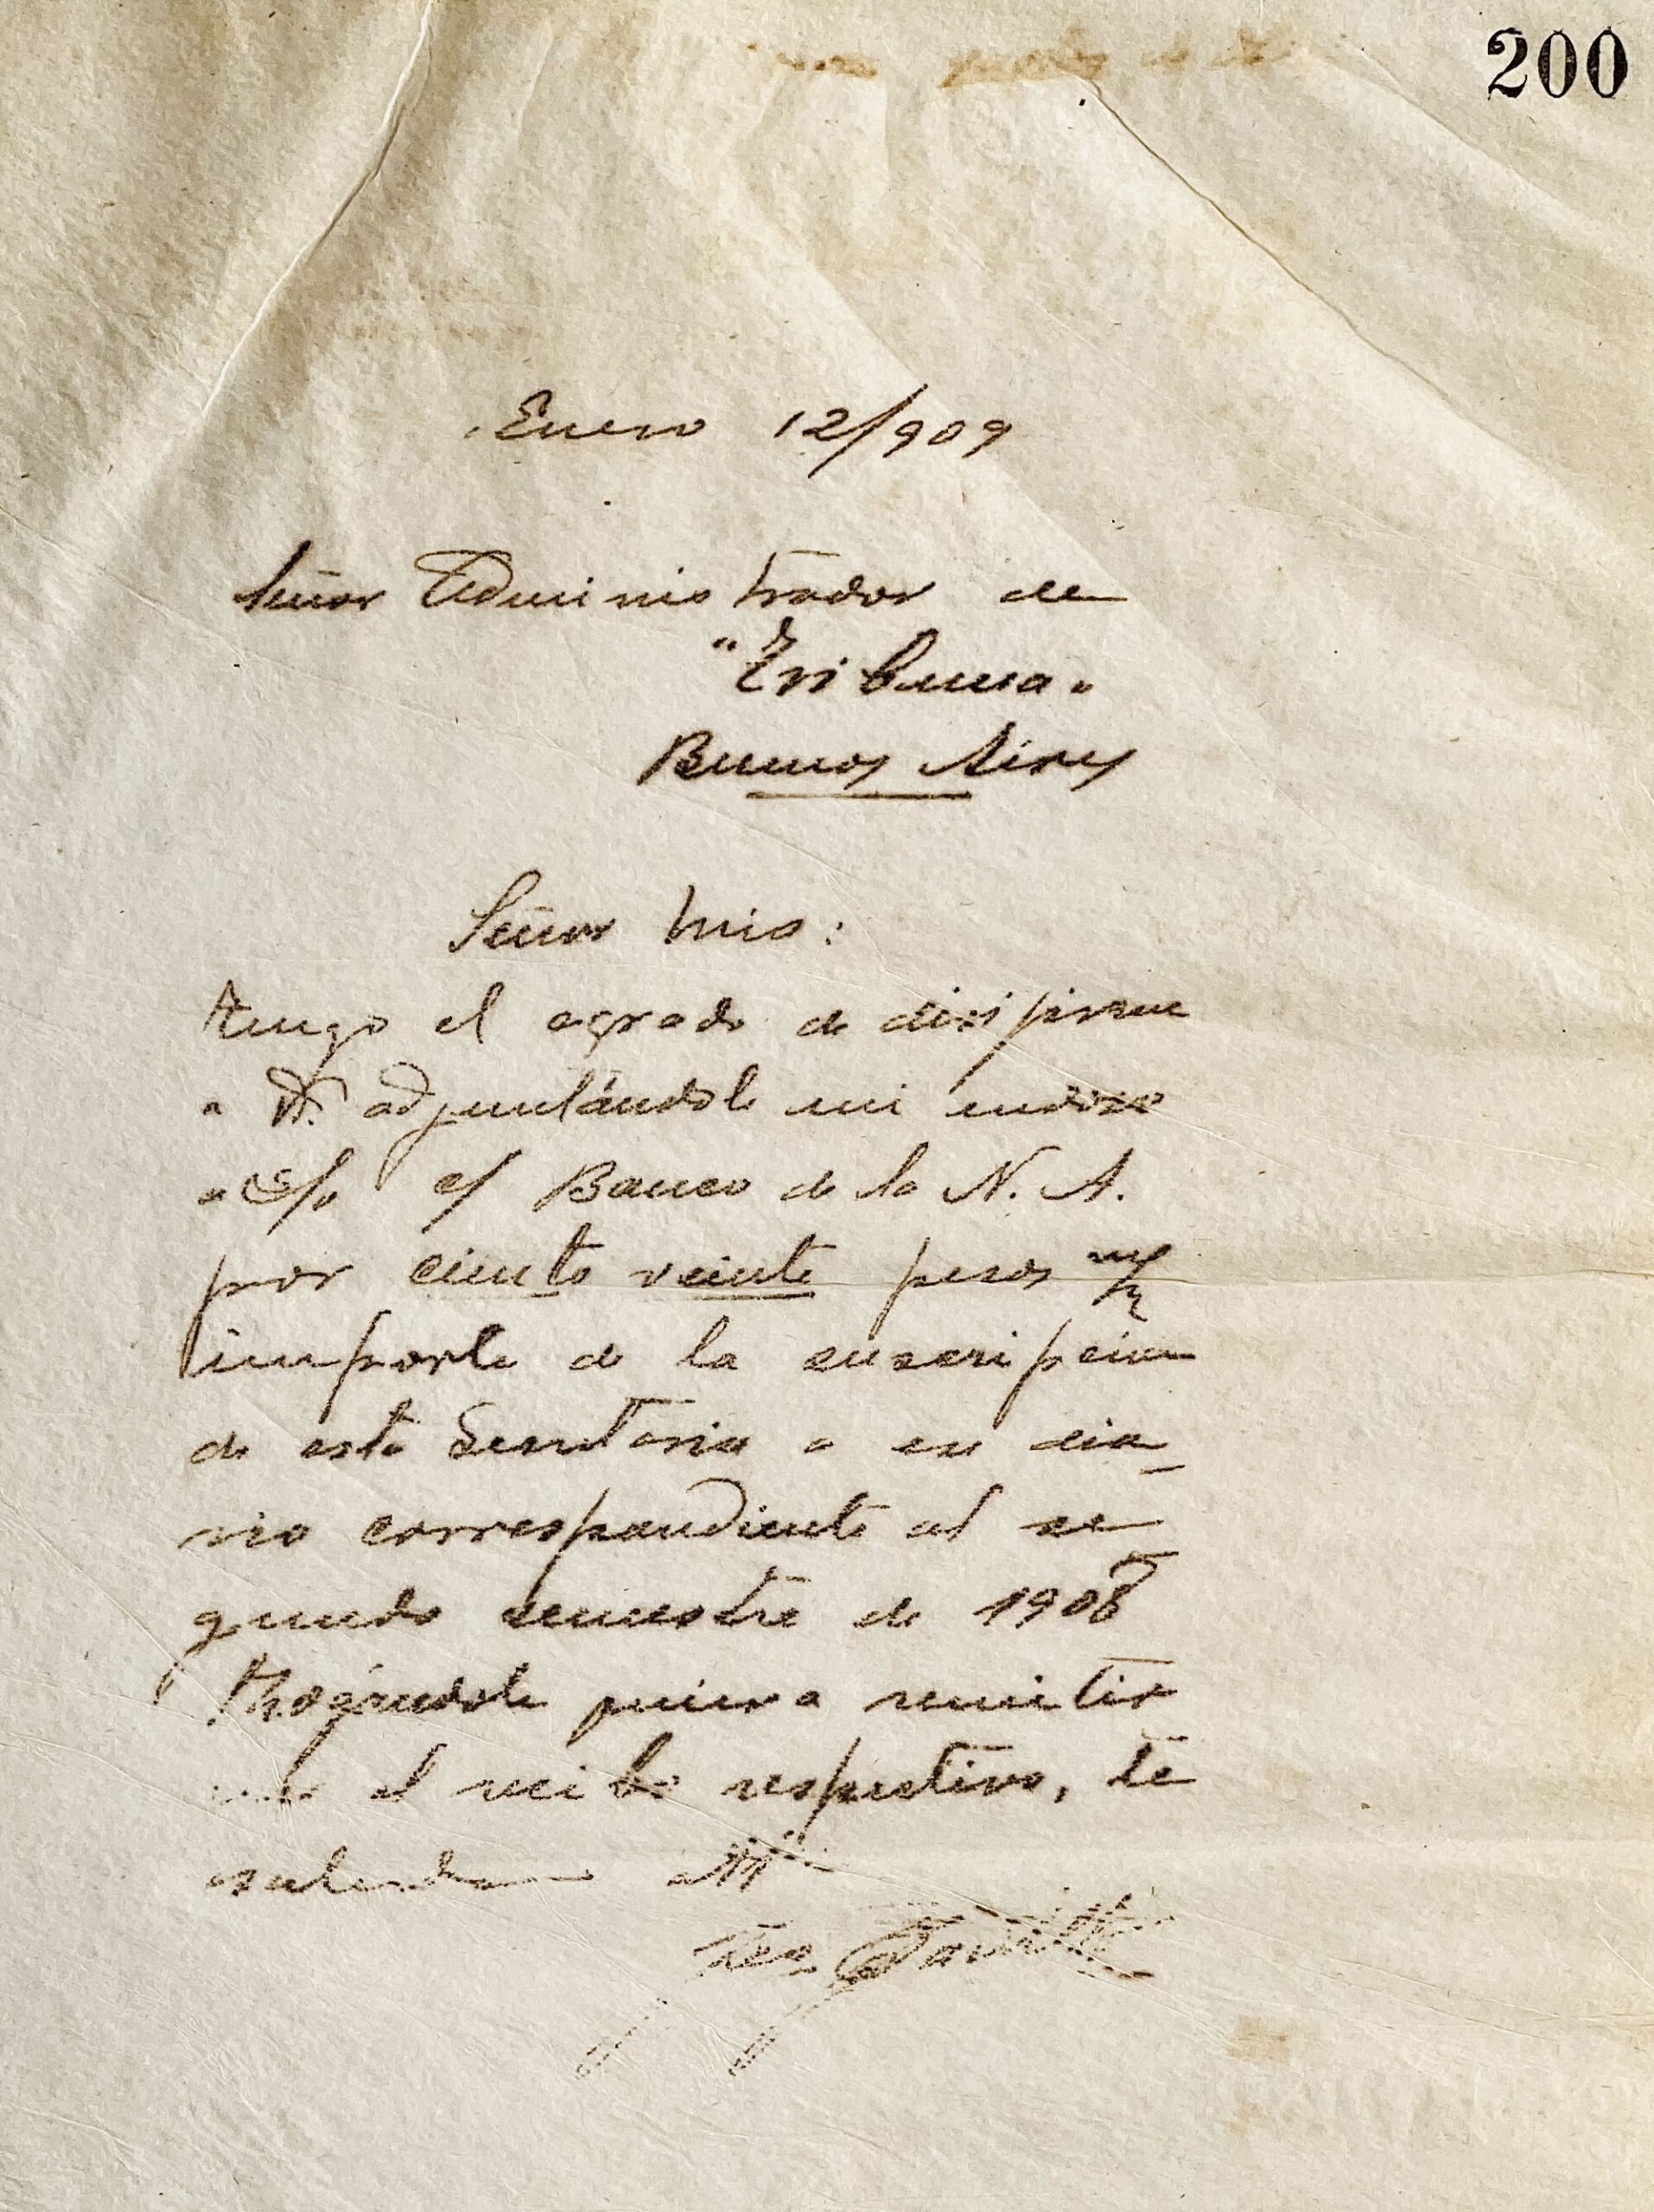 200
Enero 12/909
Señor Administrador de
"Tribuna"
Buenos Aires
Señor mio:
Tengo el agrado de dirijirme
a Vd. adjuntándole mi
a s/o c/ Banco de la N. A.
por ciento veinte pesos m/n
importe de la suscripcion
de esta Secretaria a su dia-
rio correspondiente al se-
gundo semestre de 1908
Rogándole quiera remitir
me el recibo respectivo, le
saluda